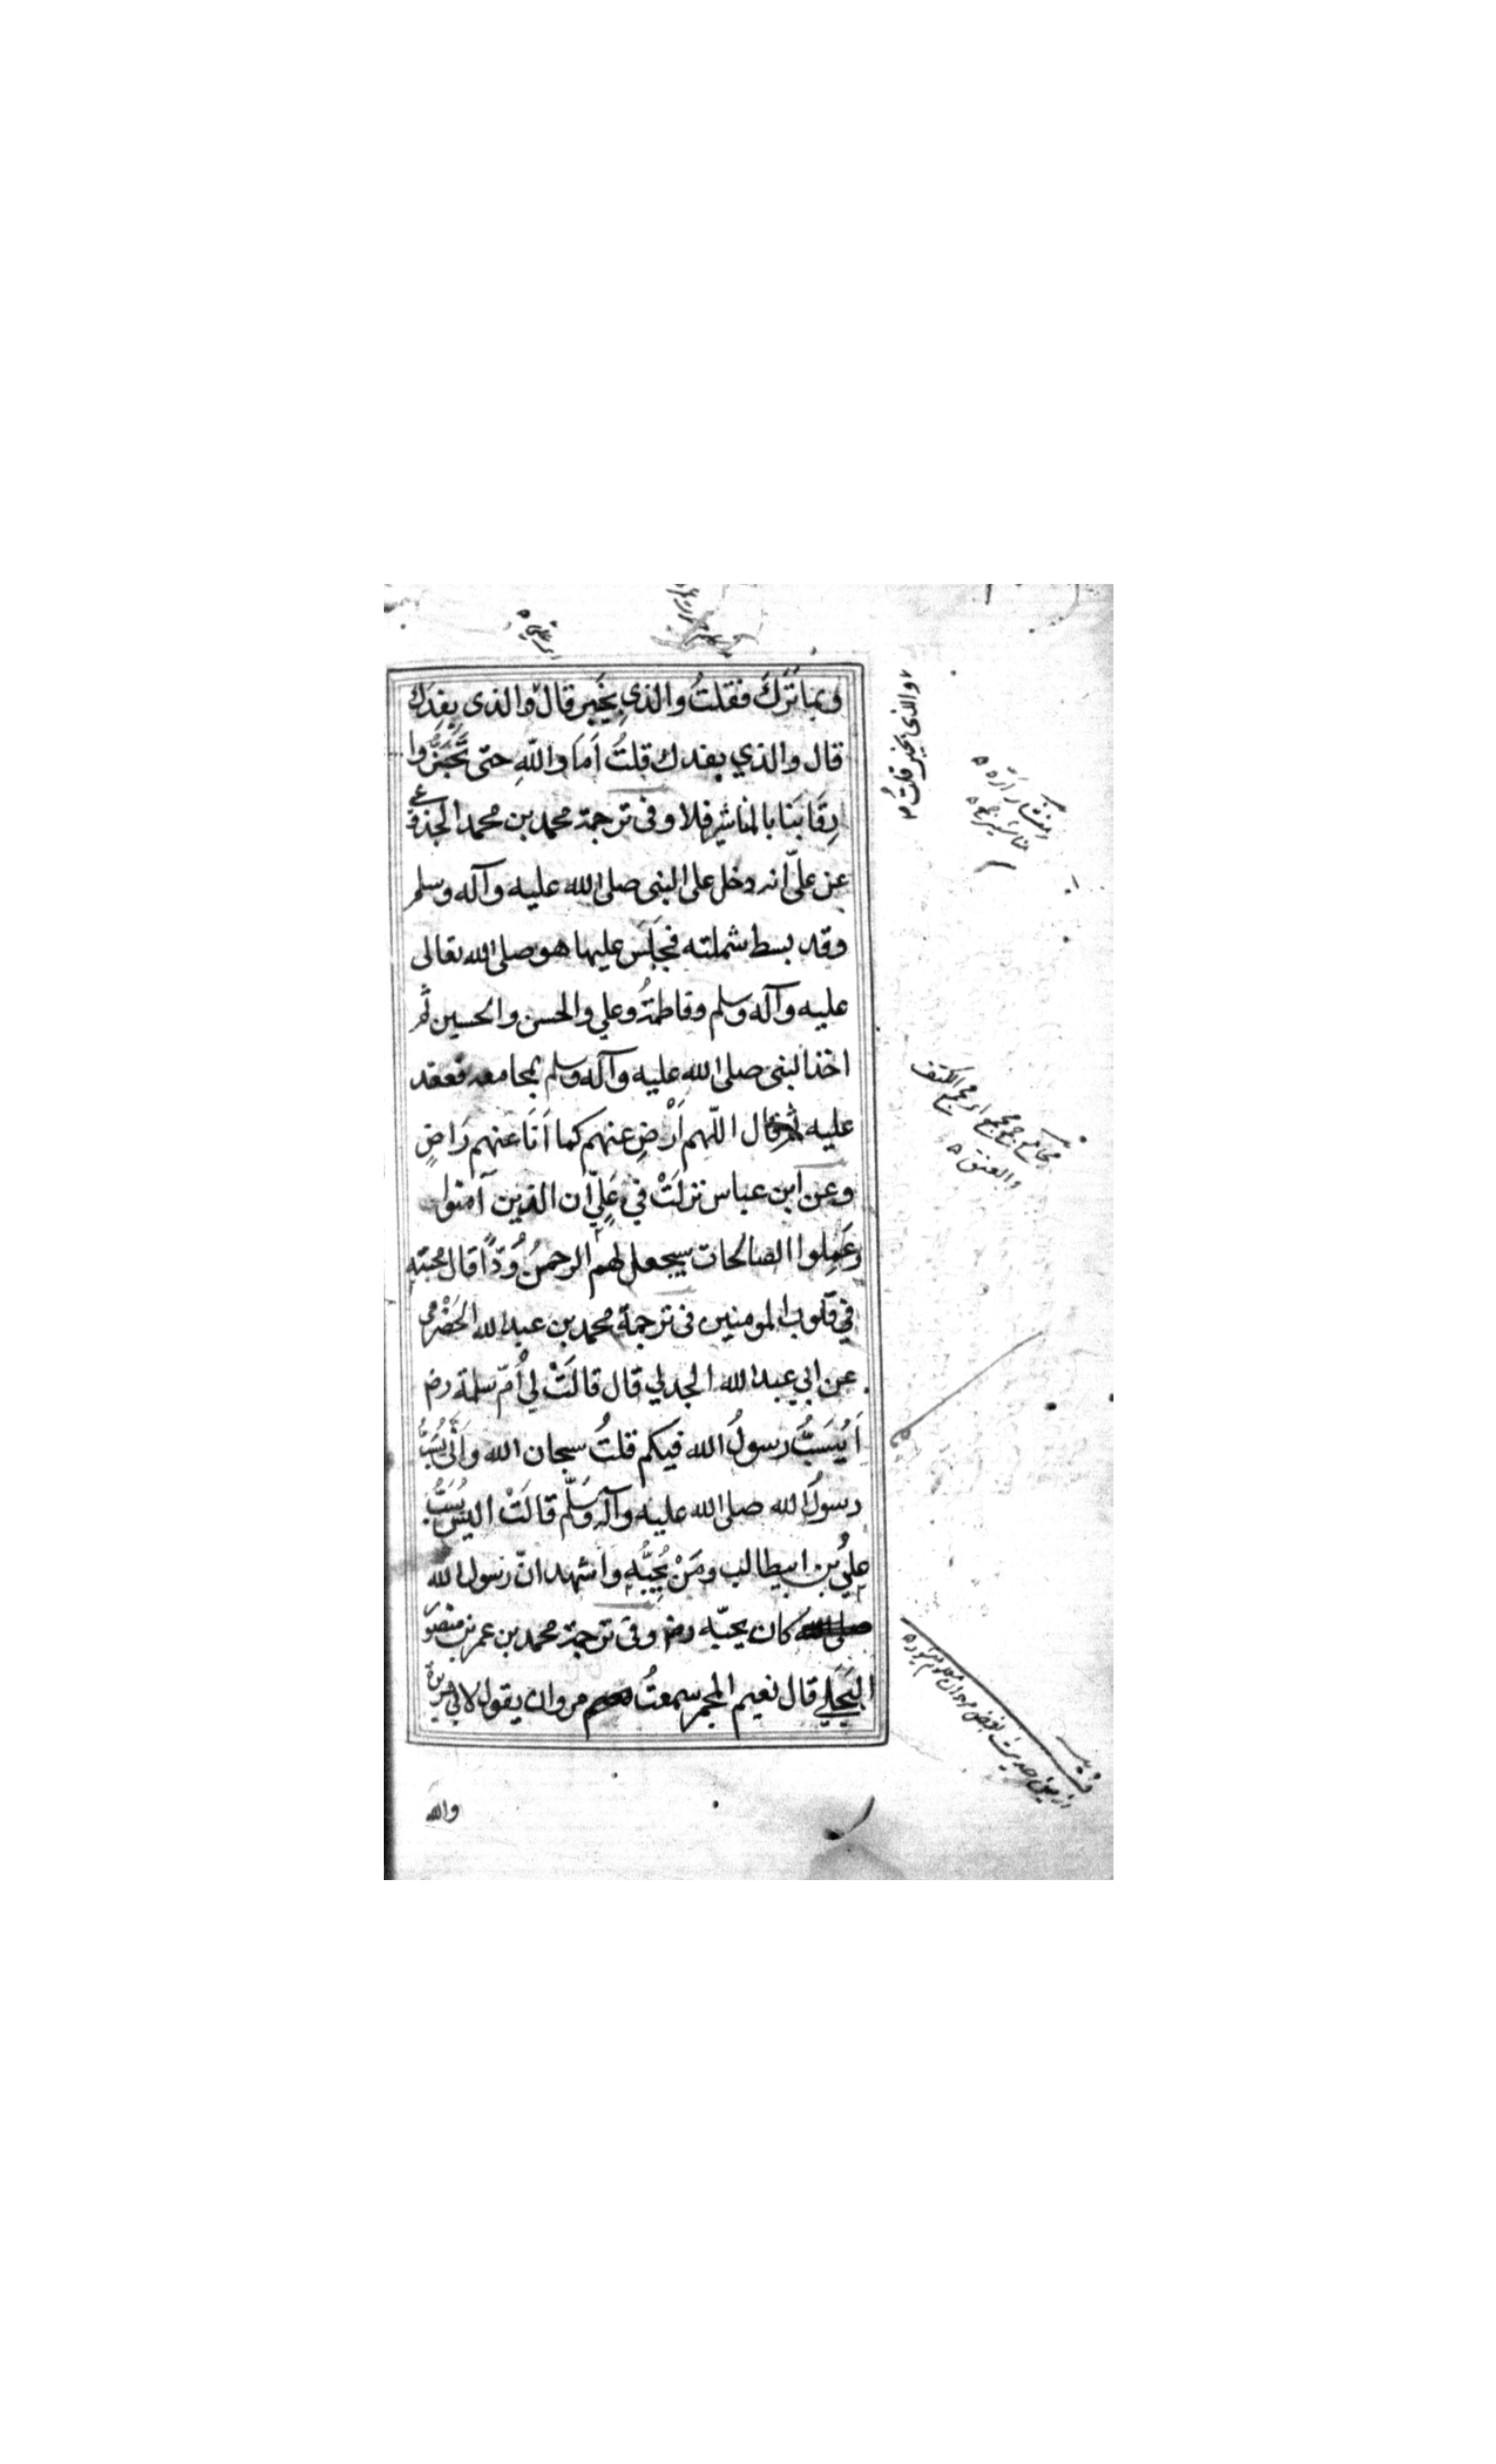 وبماتَرَكَ فقلتُ والذي بخَيبر قال والذي بفدك
قال والذي بفدك قلتُ أمَا واللّهِ حتى تَحُزُّوا
رقَابَنا بالمناشير فلا وفى ترجمة محمد بن محمد الجذوعي
عن علىّ انه دخل على النبى صلى الله عليه وآله وسلم
وقد بسط شملته فجلَسَ عليها هو صلى الله تعالى
عليه وآله وسلم وفاطمةُ وعلي والحسن والحسين ثم
اخذ النبى صلى الله عليه وآله وسلم بمجامعه فعقد
عليه ثم قال اللّهم أَرْضِ عنهم كما أَنَا عنهم رَاضٍ
وعن ابن عباس نزلَتْ في عَلِيّ ان الذين آمنوا
وعَمِلوا الصالحات سيجعل لهم الرحمنُ وُدًّا قال محبّته
في قلوب المومنين فى ترجمة محمد بن عبدالله الحَضْرمي
عن ابي عبدالله الجدلي قال قالَتْ لي أمّ سلمة رض
أَيُسَبُّ رسولُ الله فيكم قلتُ سبحان الله وأَنّى يُسَبُّ
رسولُ الله صلى الله عليه وآله وسَلَّم قالَتْ اليس يُسَبُّ
عليُّ بن ابيطالب ومَنْ يُحِبُّه واشهد انّ رسول الله
كان يحبّه رض وفى ترجمة محمد بن عمر بن منصور
البَجَلي قال نعيم المجمر سمعتُ مروان يقول لابي هريرة
والذى بخيبر قلتُ
منشار ارّه
مناشير جمع
مجامع جمع مجمع او مجمع الكتف
والعنق
والله